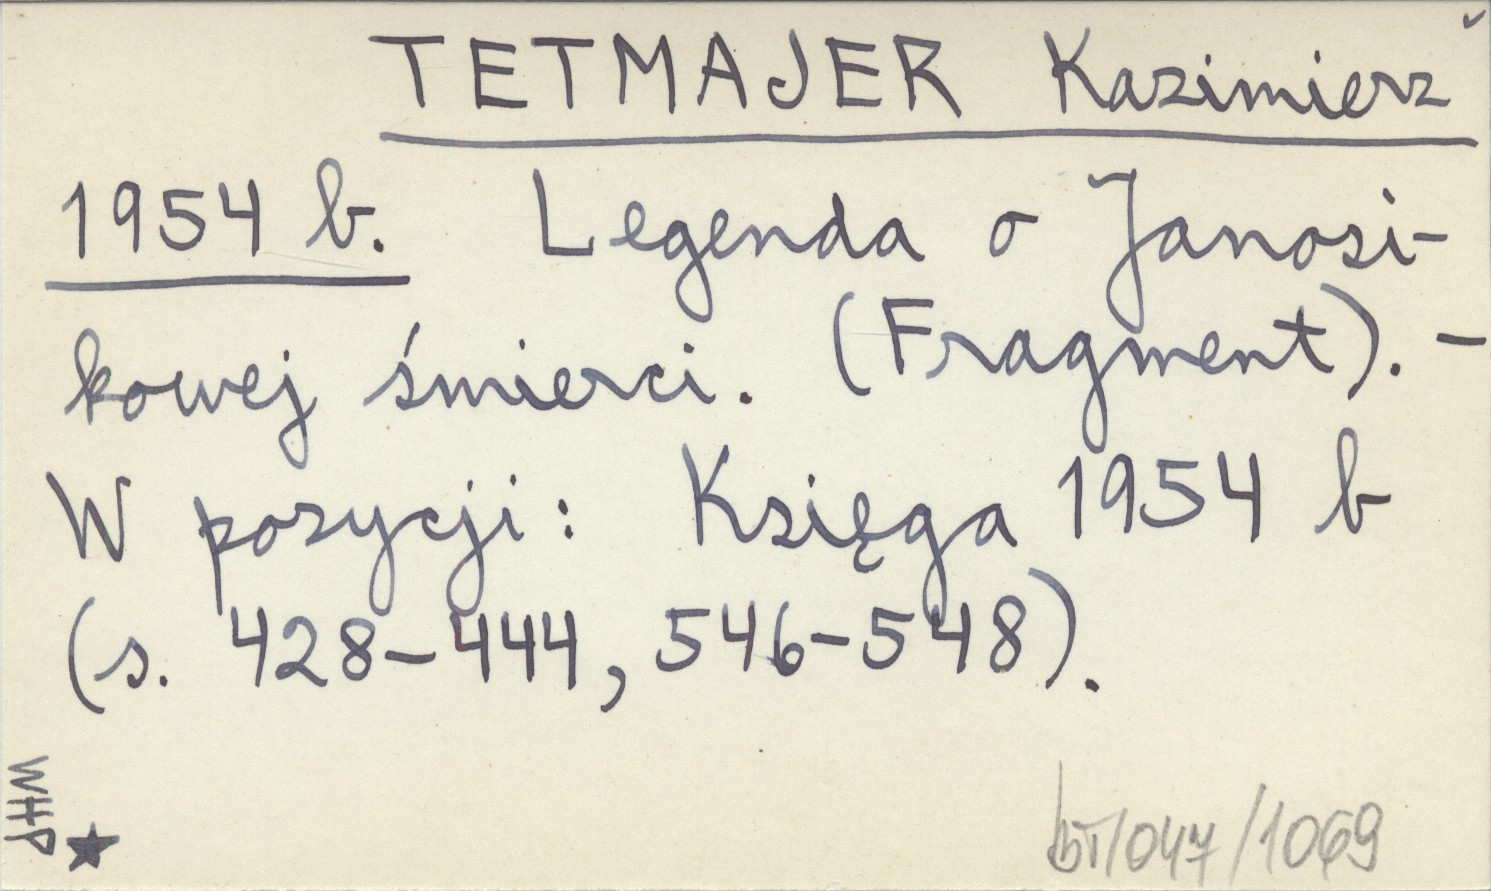 TETMAJER Kazimierz
1954 b. Legenda o Janosi-
kowej śmierci. (Fragment). -
W pozycji: Księga 1954 b
(s. 428-444, 546-548).
WHP
/047/1069